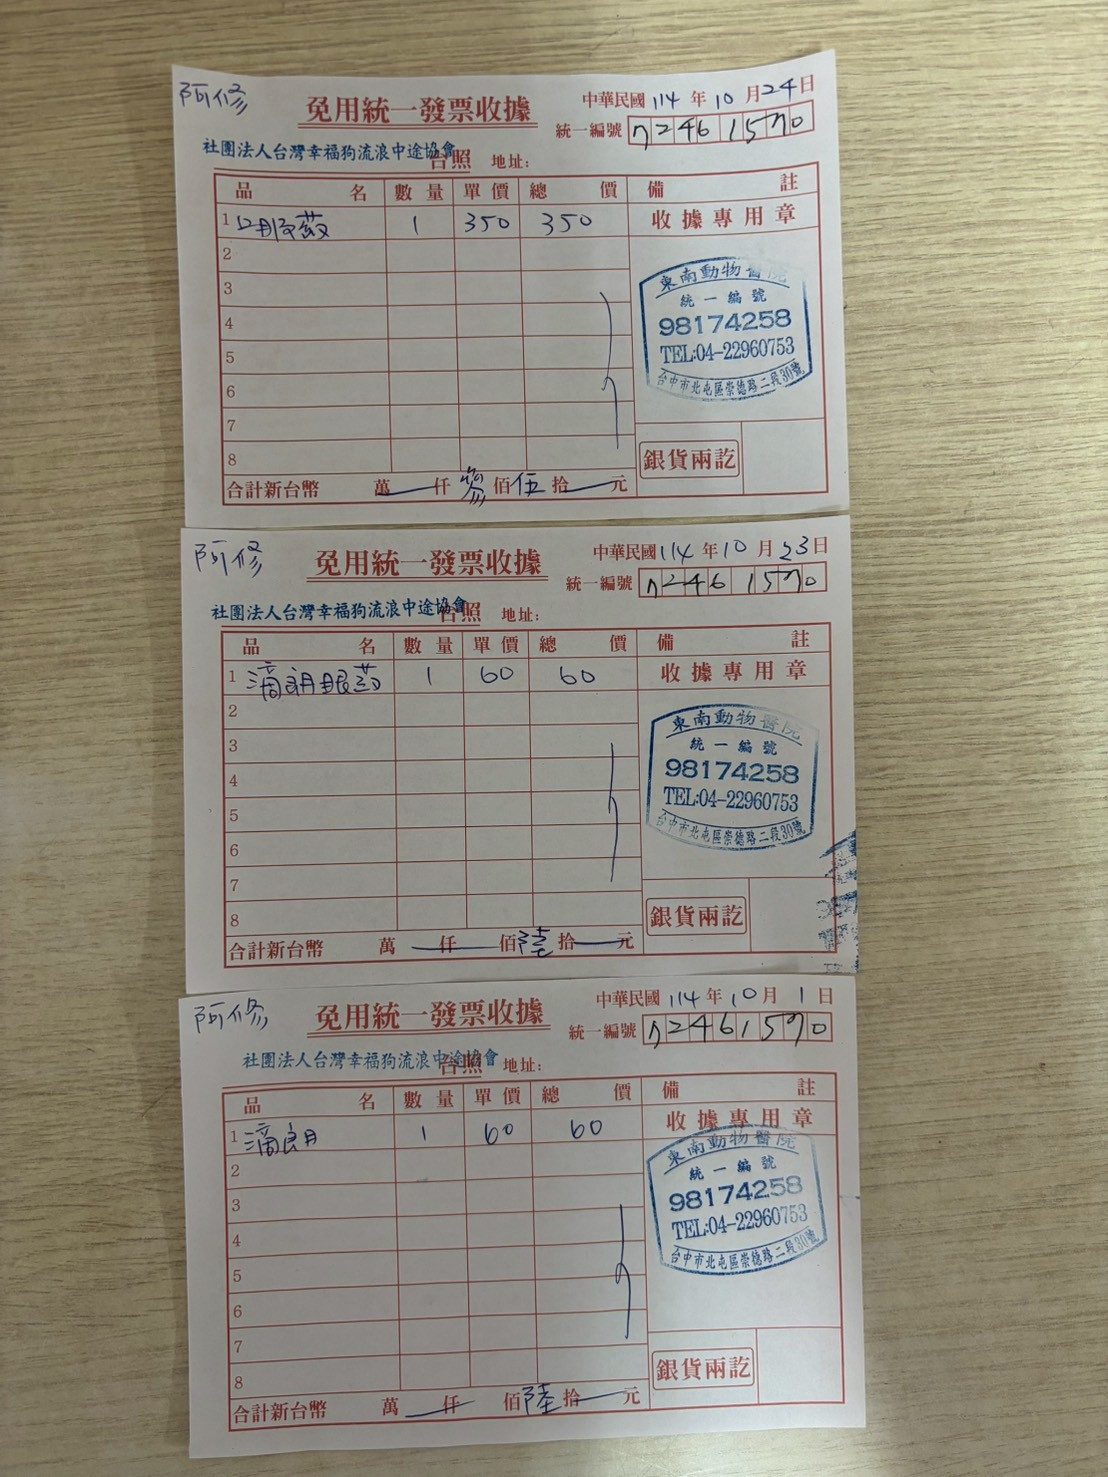 阿修
免用統一發票收據
中華民國 114 年 10 月 24 日
統一編號 72461570
社團法人台灣幸福狗流浪中途協會
台照 地址:
品名 數量 單價 總價 備註
1 口服藥 1 350 350 收據專用章
2
3
4
5
6
7
8
東南動物醫院
統一編號
98174258
TEL:04-22960753
台中市北屯區崇德路二段30號
銀貨兩訖
合計新台幣 萬 仟 參 佰 伍 拾 元
阿修
免用統一發票收據
中華民國 114 年 10 月 23 日
統一編號 72461570
社團法人台灣幸福狗流浪中途協會
台照 地址:
品名 數量 單價 總價 備註
1 滴朗眼药 1 60 60 收據專用章
2
3
4
5
6
7
8
東南動物醫院
統一編號
98174258
TEL:04-22960753
台中市北屯區崇德路二段30號
銀貨兩訖
合計新台幣 萬 仟 佰 陸 拾 元
阿修
免用統一發票收據
中華民國 114 年 10 月 1 日
統一編號 72461570
社團法人台灣幸福狗流浪中途協會
台照 地址:
品名 數量 單價 總價 備註
1 滴朗 1 60 60 收據專用章
2
3
4
5
6
7
8
東南動物醫院
統一編號
98174258
TEL:04-22960753
台中市北屯區崇德路二段30號
銀貨兩訖
合計新台幣 萬 仟 佰 陸 拾 元